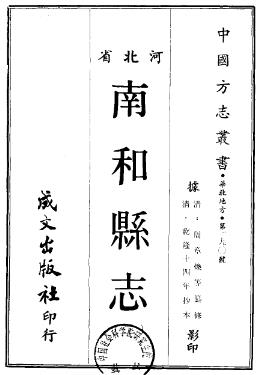 中國方志叢書・華北地方・第　號
據
清・周章煥等纂修
清・乾隆十四年抄本
影印
河北省
南和縣志
成文出版社印行